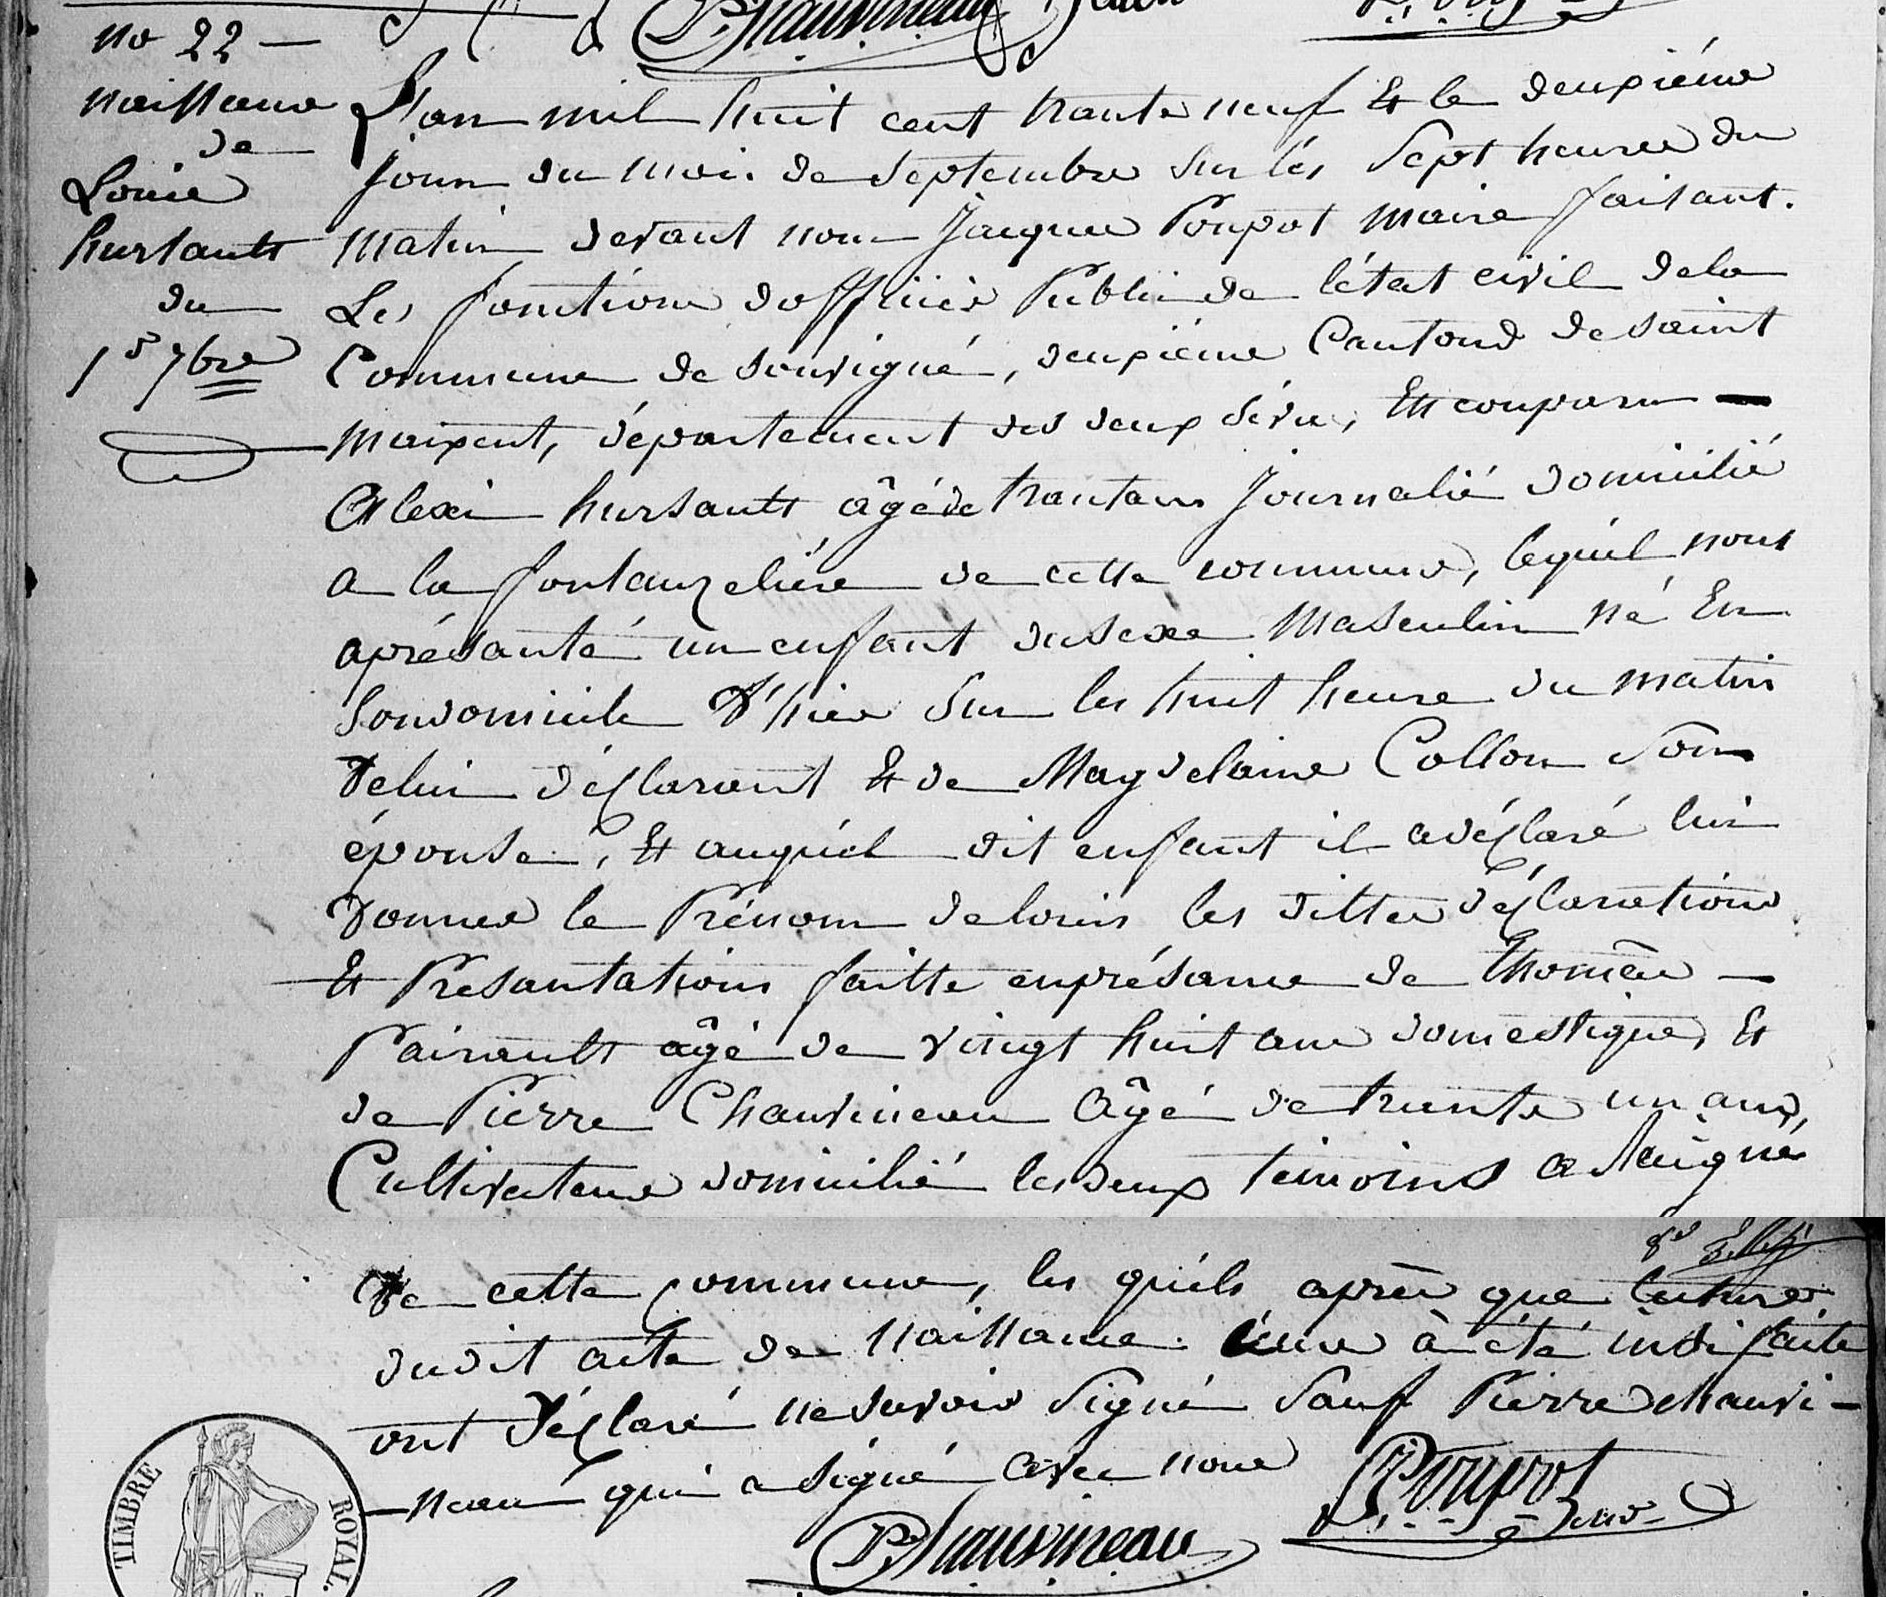 no 22 —
naissance
de
Louis
hursault
du
1er 7bre
L'an mil huit cent trante neuf Et le deuxiéme
jour du mois de septembre sur lés sept heures du
matin devant nous Jacques Poupot maire faisant.
Les fonctions dofficiér Public de l'état civil dela
Commune de souvigné, deuxiéme Cantond de saint
maixent, département des deux sévres, Est comparu —
Alexi hursault âgé de trantans Journalié domicilié
a la fontauzeliére de cette commune, lequél nous
aprésanté un enfant dusexe masculin né En
sondomicile d'hier sur les huit heure du matin
delui déclarant Et de Magdelaine Collon son
épouse, Et auquél dit enfant il adéclaré lui
donner le Prénom delouis les dittes déclarations
Et Présantations faitte enprésance de Thomas —
Pairault âgé de vingt huit ans domestique, Et
de Pierre Chauvineau âgé de trente un ans,
Cultivateur domicilié lesdeux témoins a
de cette commune, les quéls aprés que lecture
dudit acte de naissance à été faite
ont déclaré nesavoir signé sauf Pierre chauvi-
-neau qui a signé avec nous
Poupot
P. Chauvineau
TIMBRE ROYAL.